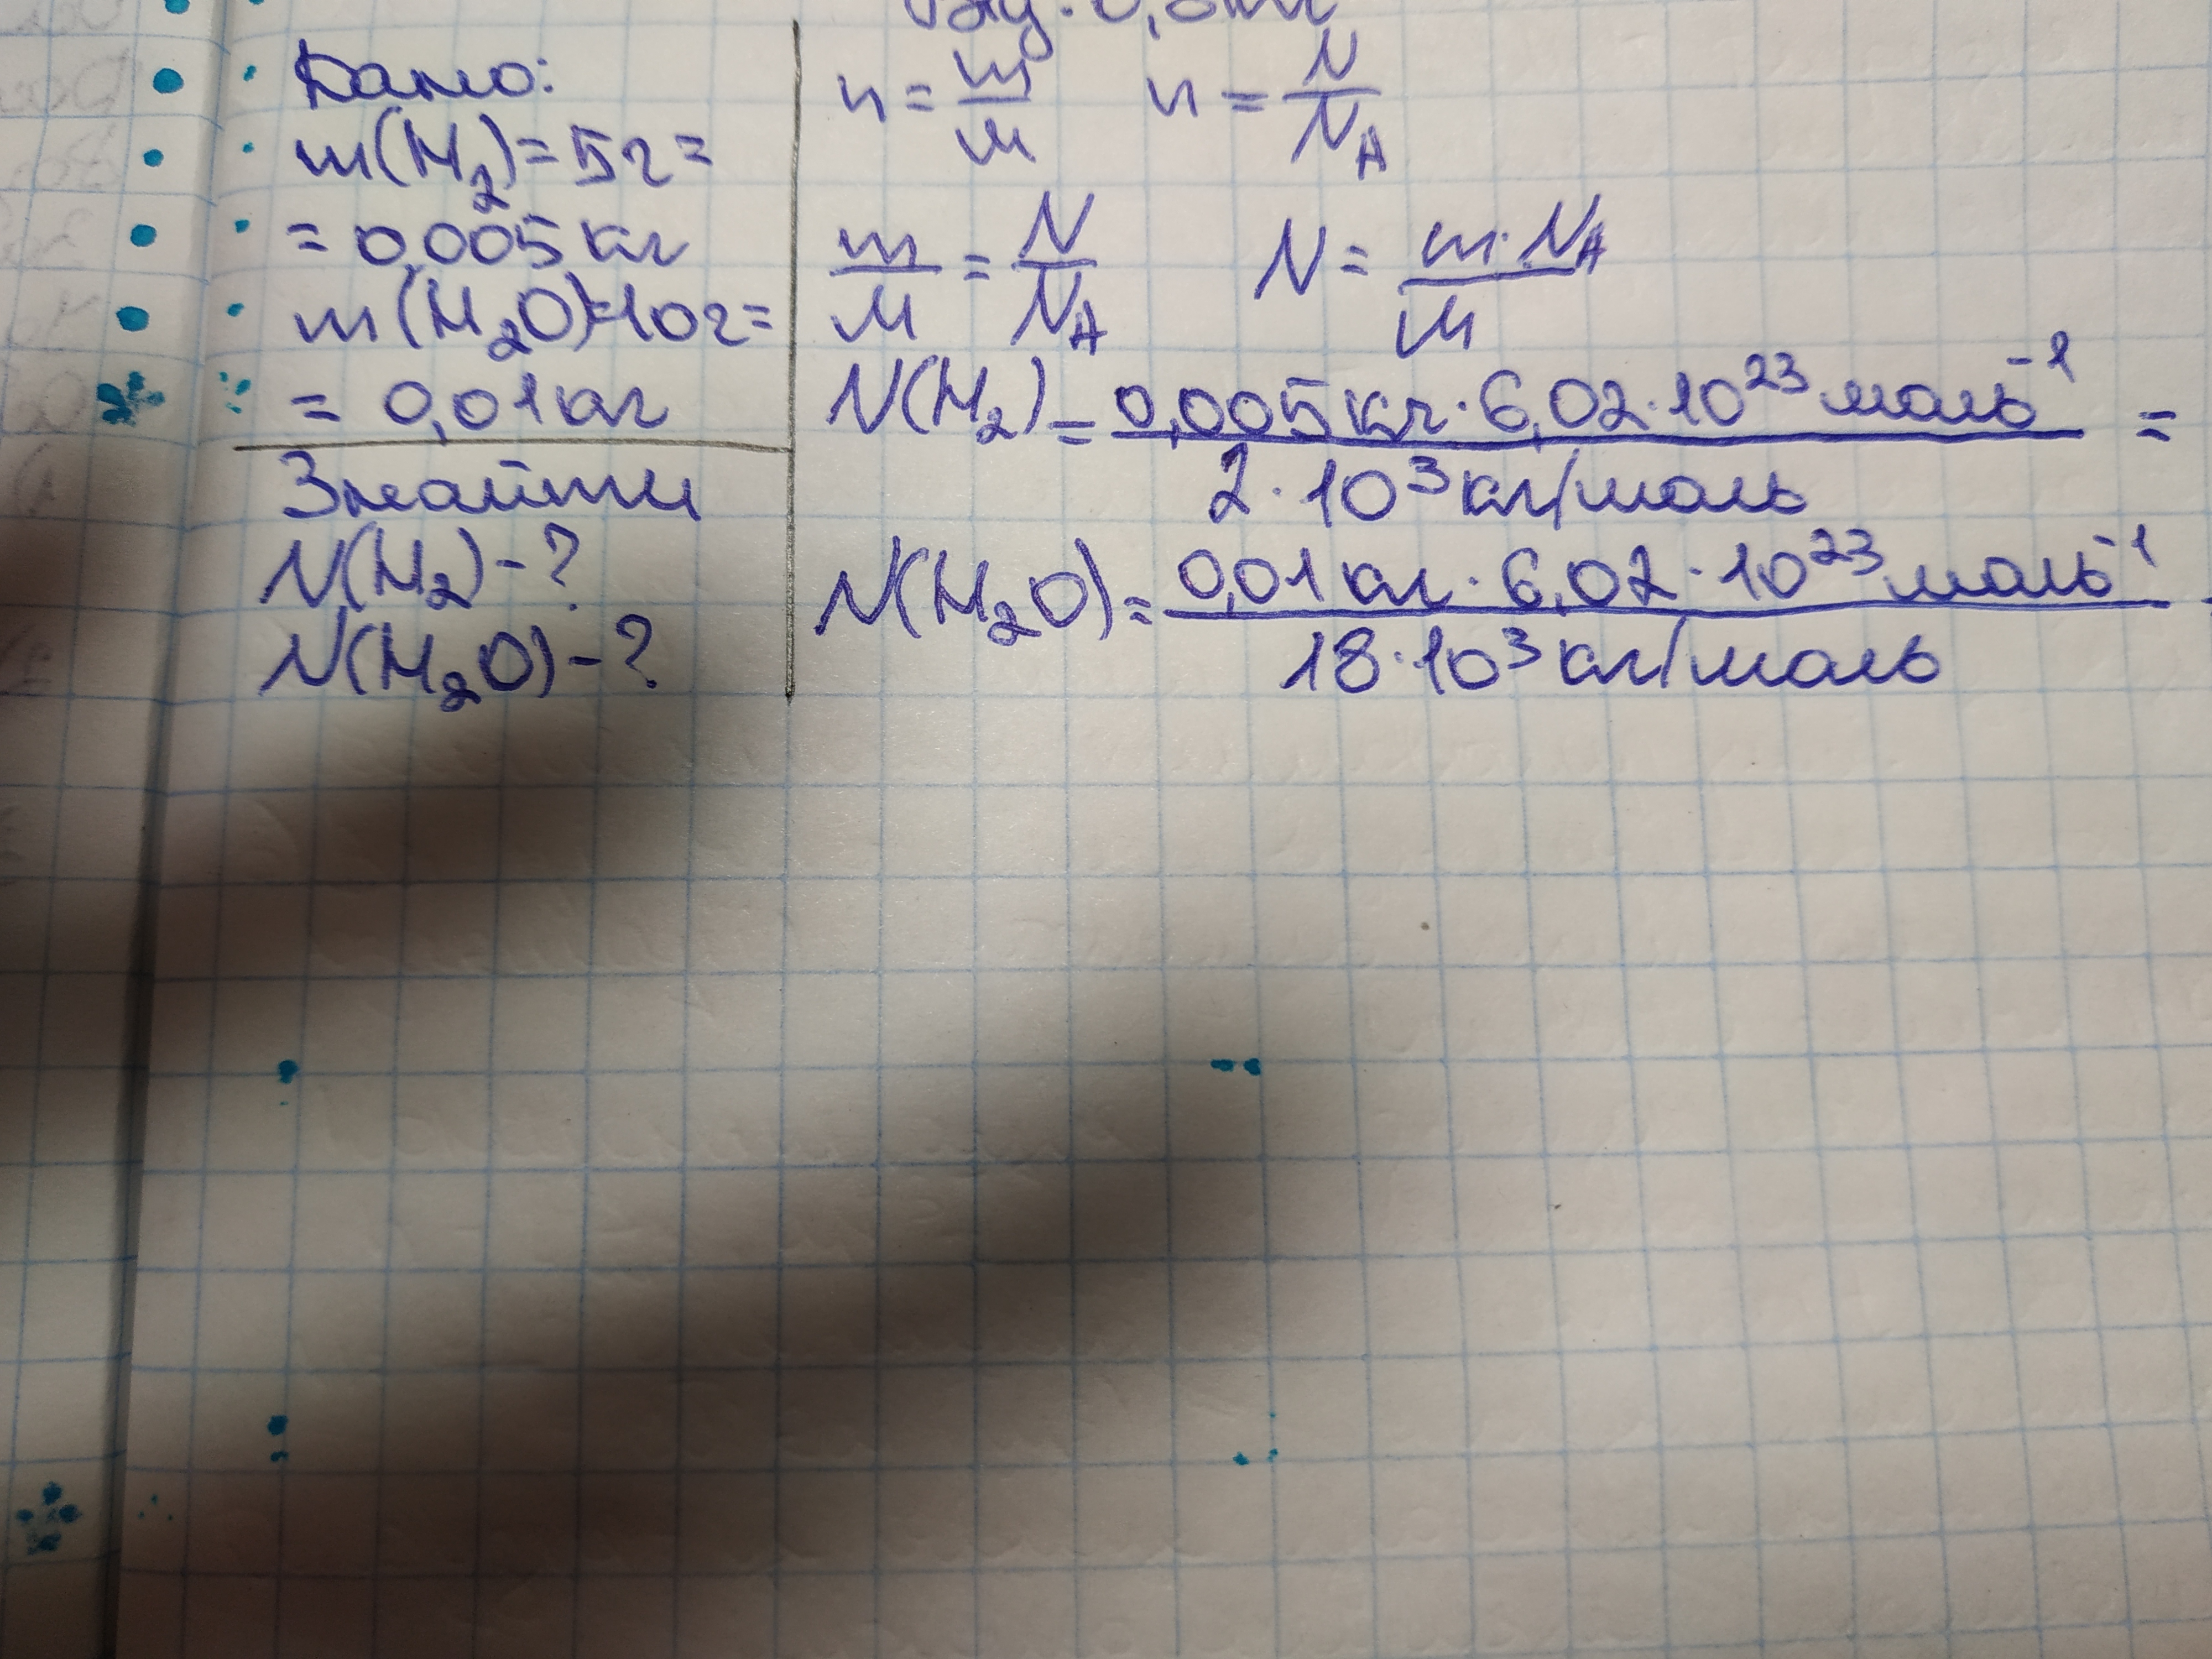 Дано:
m(H₂)=5г=
=0,005кг
m(H₂O)=10г=
= 0,01кг
Знайти
N(H₂)-?
N(H₂O)-?
n = m/M n = N/N_A
m/M = N/N_A N = m·N_A/M
N(H₂) = 0,005кг·6,02·10²³моль⁻¹ =
2·10³кг/моль
N(H₂O) = 0,01кг·6,02·10²³моль⁻¹
18·10³кг/моль